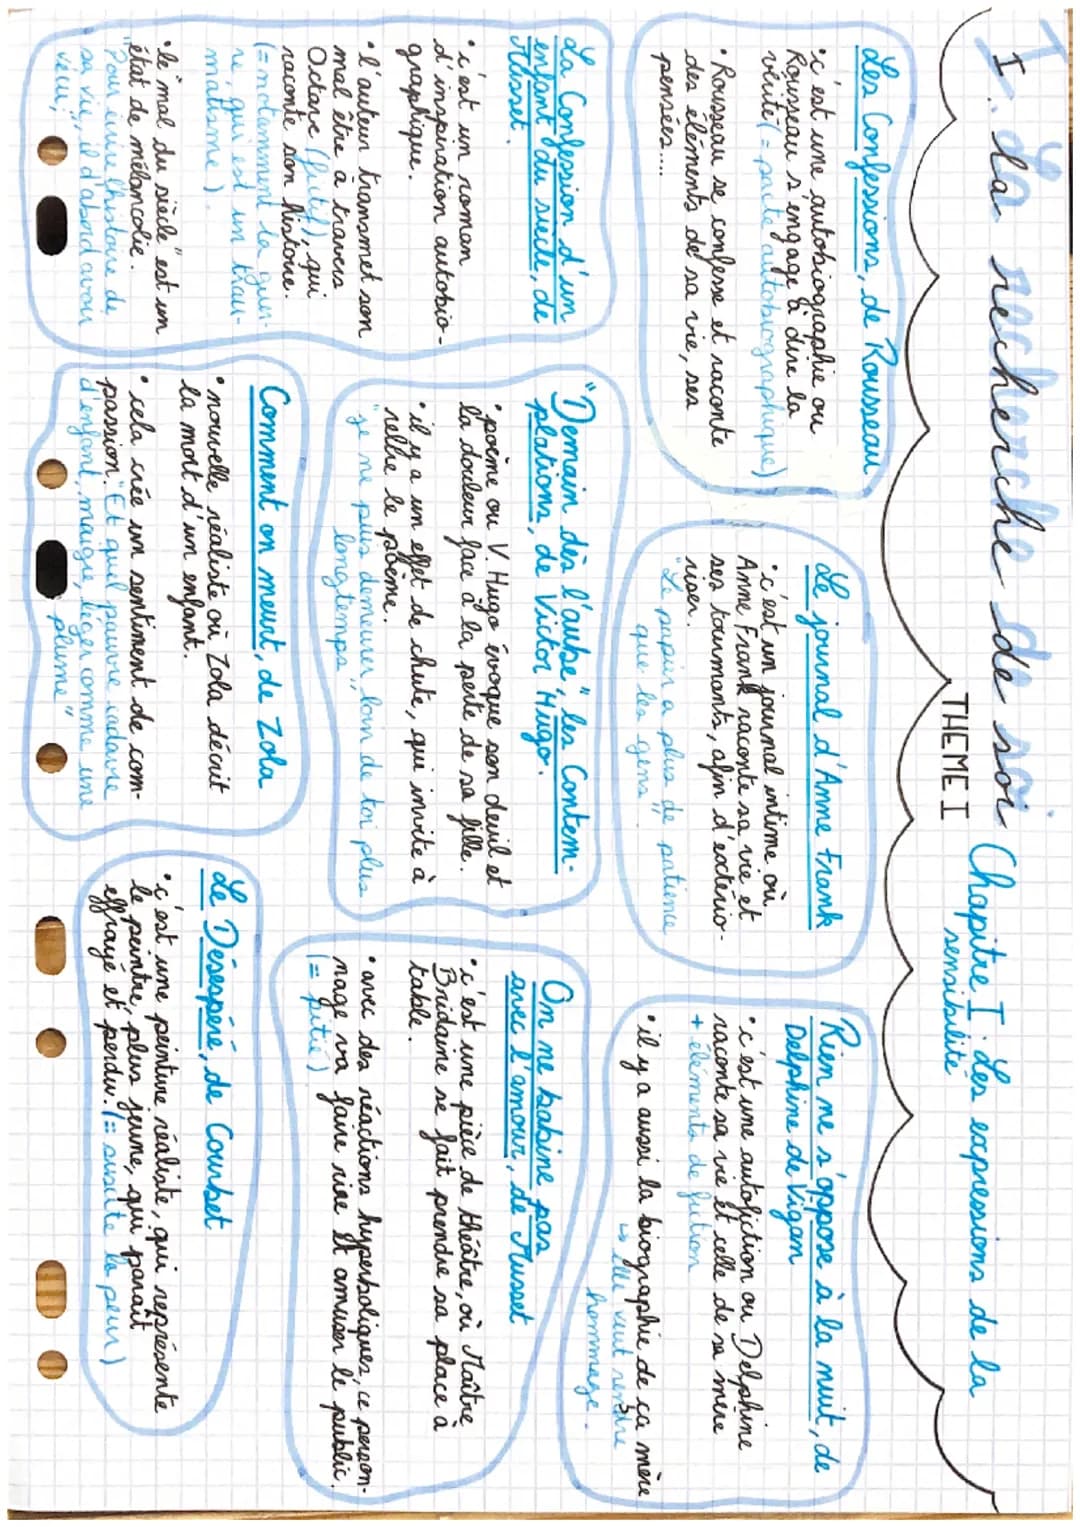 I. La recherche de soi
THEME I
Chapitre I : Les expressions de la
sensibilité
Les Confessions, de Rousseau
• c'est une autobiographie ou
Rousseau s'engage à dire la
vérité (= pacte autobiographique)
• Rousseau se confesse et raconte
des éléments de sa vie, ses
pensées...
Le journal d'Anne Frank
• c'est un journal intime où
Anne Frank raconte sa vie et
ses tourments, afin d'extério-
riser.
"Le papier a plus de patience
que les gens"
Rien ne s'oppose à la nuit, de
Delphine de Vigan
• c'est une autofiction ou Delphine
raconte sa vie et celle de sa mère
+ éléments de fiction
• il y a aussi la biographie de ça mère
↳ elle veut rendre
hommage.
La Confession d'un
enfant du siècle, de
Musset.
• c'est un roman
d'inspiration autobio-
graphique.
• l'auteur transmet son
mal être à travers
Octave (fictif), qui
raconte son histoire.
(= notamment la guer-
re, qui est un trau-
matisme).
• le "mal du siècle" est un
état de mélancolie.
"Pour écrire l'histoire de
sa vie, il d'abord avoir
vécu"
"Demain dès l'aube", les Contem-
plations, de Victor Hugo.
• poème ou V. Hugo évoque son deuil et
la douleur face à la perte de sa fille.
• il y a un effet de chute, qui invite à
relire le poème.
"je ne puis demeurer loin de toi plus
longtemps"
On ne badine pas
avec l'amour, de Musset
• c'est une pièce de théâtre, où Maître
Bridaine se fait prendre sa place à
table.
• avec des réactions hyperboliques, ce person-
nage va faire rire et amuser le public.
(= pitié)
Comment on meurt, de Zola
• nouvelle réaliste où Zola décrit
la mort d'un enfant.
• cela crée un sentiment de com-
passion. "Et quel pauvre cadavre
d'enfant, maigre, léger comme une
plume"
Le Désespéré, de Courbet
• c'est une peinture réaliste, qui représente
le peintre, plus jeune, qui paraît
effrayé et perdu. (= suscite la peur)